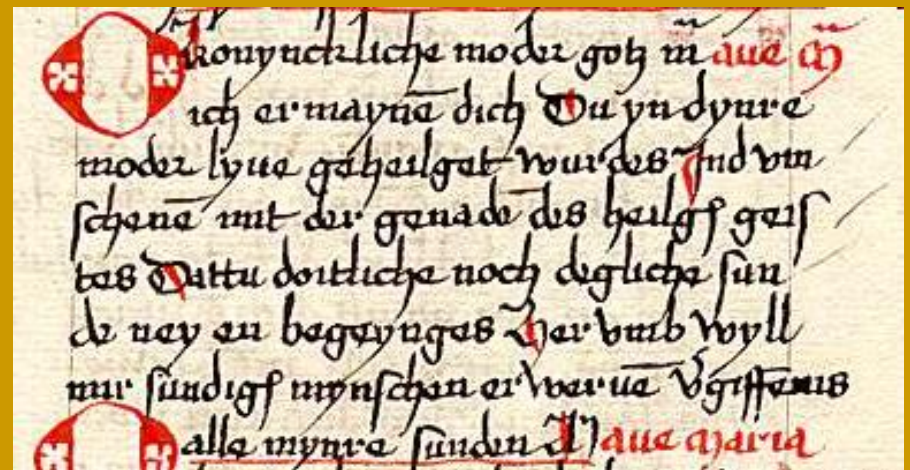 O konynckliche moder gotz m̄ aue M̄
ich ermayne̅ dich Du yn dynre
moder lyue geheilget wurdes Ind vm
schene̅ mit der genade̅ des heilgē geis
tes Dattu doitliche noch degliche sun
de ney en begeynges Her vmb wyll
mir sundigē mynschen erweruē v̄giffenis
alle mynre sunden A aue maria